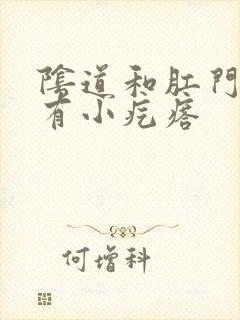 陰道和肛門
有小疙瘩
何增科